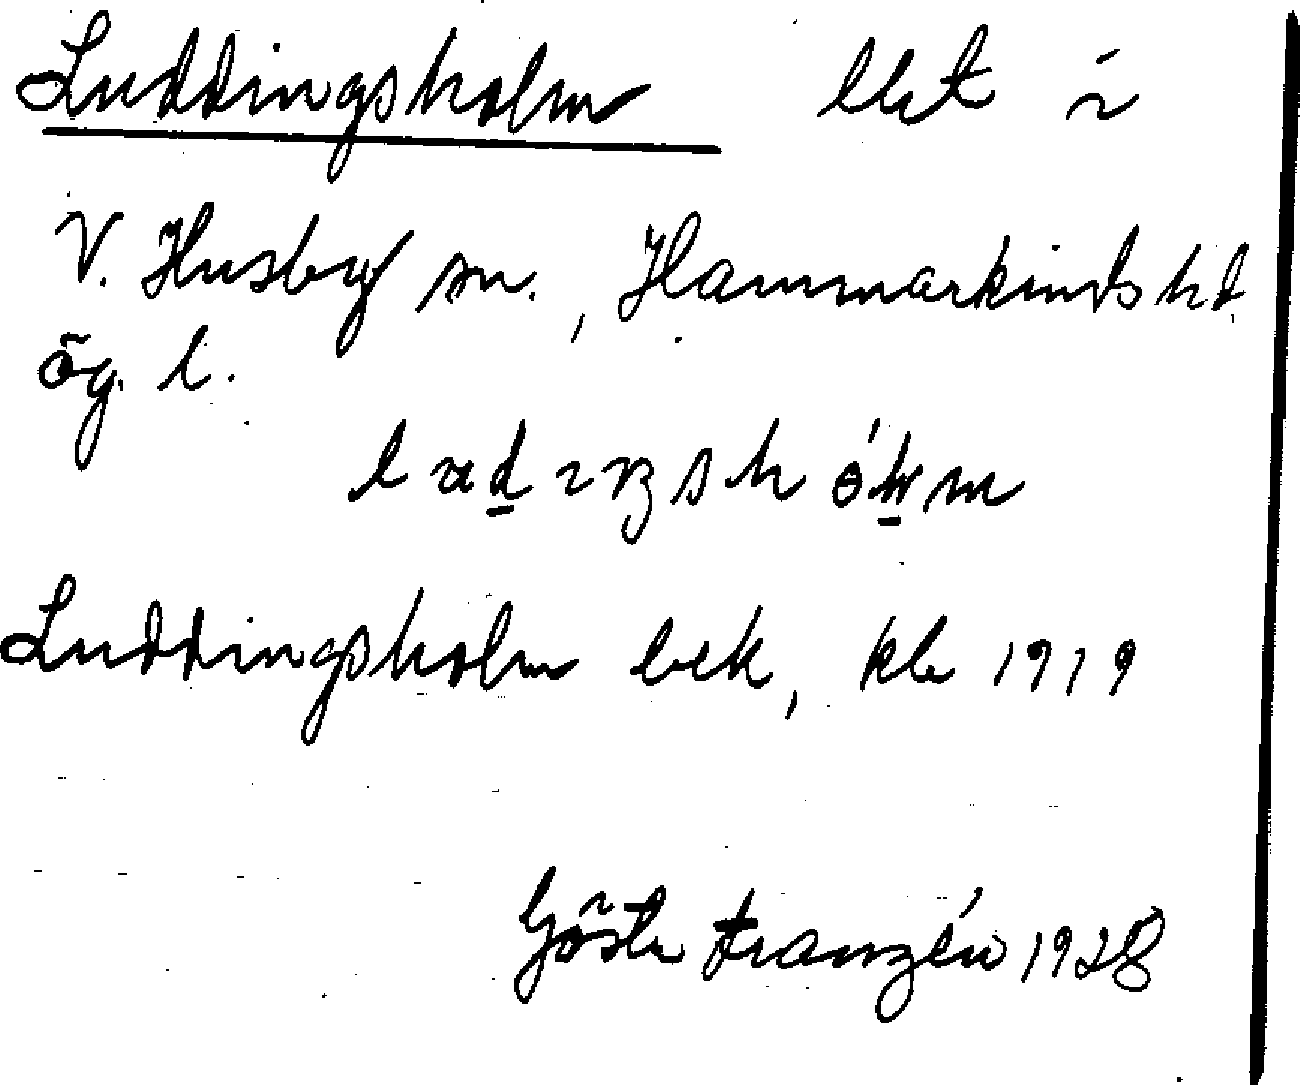 Luddingsholm lht i
V. Husby sn., Hammarkinds hd
ög. l.
Luddingsholm bek, kb 1919
Gösta Franzén 1928